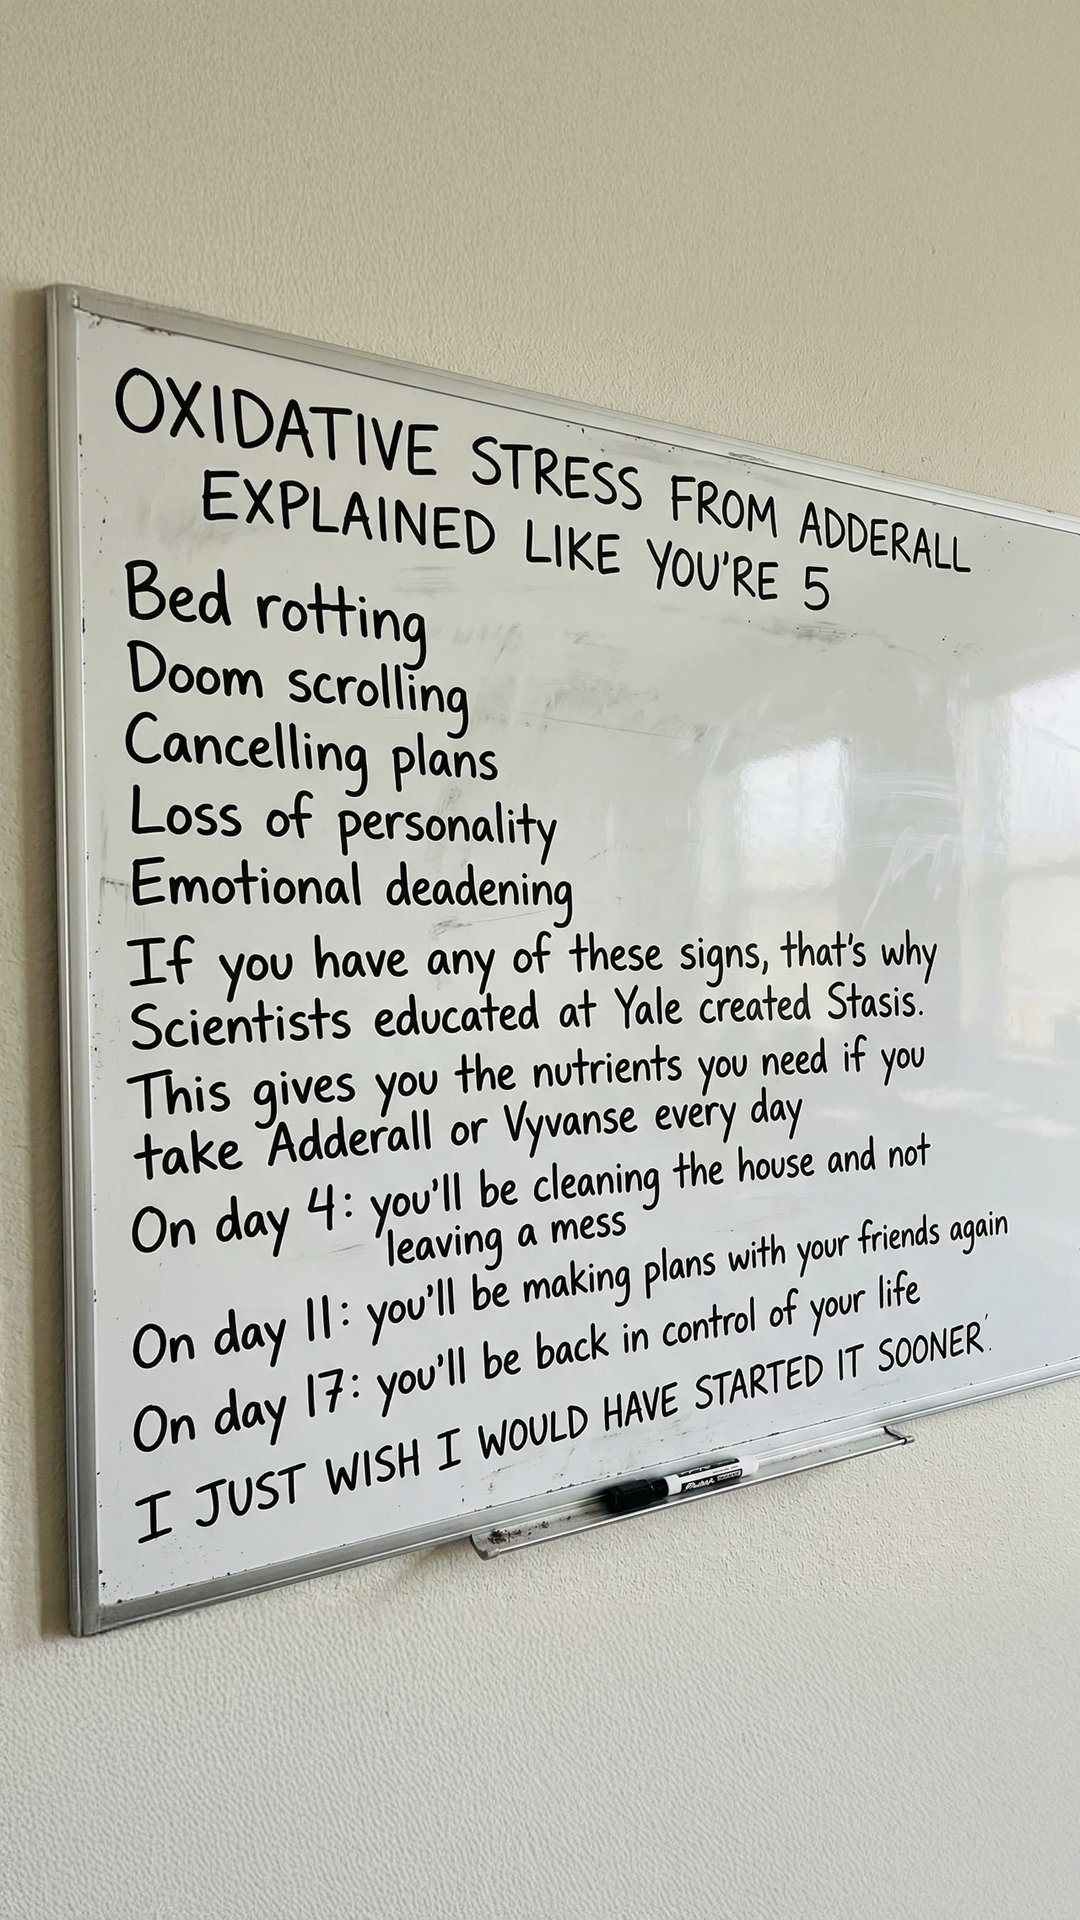 OXIDATIVE STRESS FROM ADDERALL
EXPLAINED LIKE YOU'RE 5
Bed rotting
Doom scrolling
Cancelling plans
Loss of personality
Emotional deadening
If you have any of these signs, that's why
Scientists educated at Yale created Stasis.
This gives you the nutrients you need if you
take Adderall or Vyvanse every day
On day 4: you'll be cleaning the house and not
leaving a mess
On day 11: you'll be making plans with your friends again
On day 17: you'll be back in control of your life
I JUST WISH I WOULD HAVE STARTED IT SOONER.